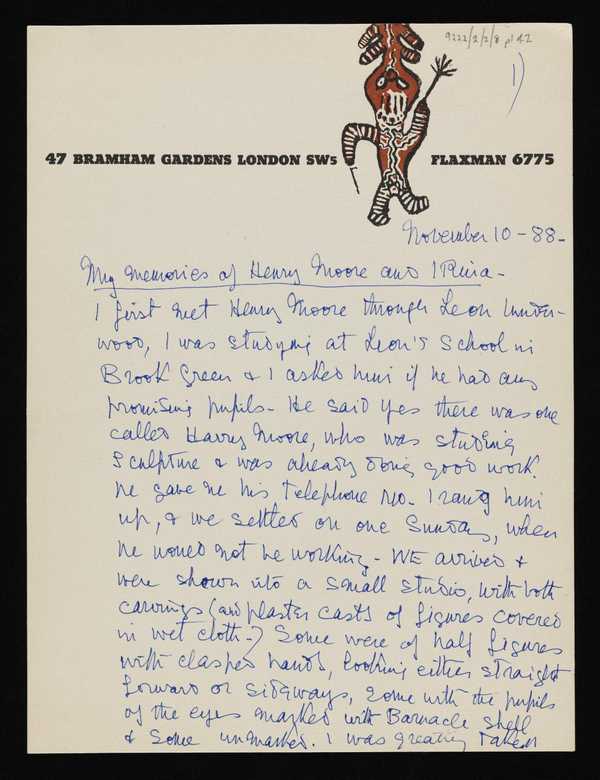 9222/2/2/8 p1 42
1)
47 BRAMHAM GARDENS LONDON SW5
FLAXMAN 6775
November 10 - 88 -
My memories of Henry Moore and IRina -
I first met Henry Moore through Leon Under-
wood, I was studying at Leon's School in
Brook Green & I asked him if he had any
promising pupils - He said yes there was one
called Harry Moore, who was studying
Sculpture & was already doing good work.
he gave me his Telephone no. I rang him
up, & we settled on one Sunday, when
he would not be working - WE arrived &
were shown into a small studio, with both
carvings (and plaster casts of figures covered
in wet cloth -) Some were of half figures
with clasped hands, looking either straight
forward or sideways, some with the pupils
of the eyes marked with Barnacle shell
& some unmarked. I was greatly taken